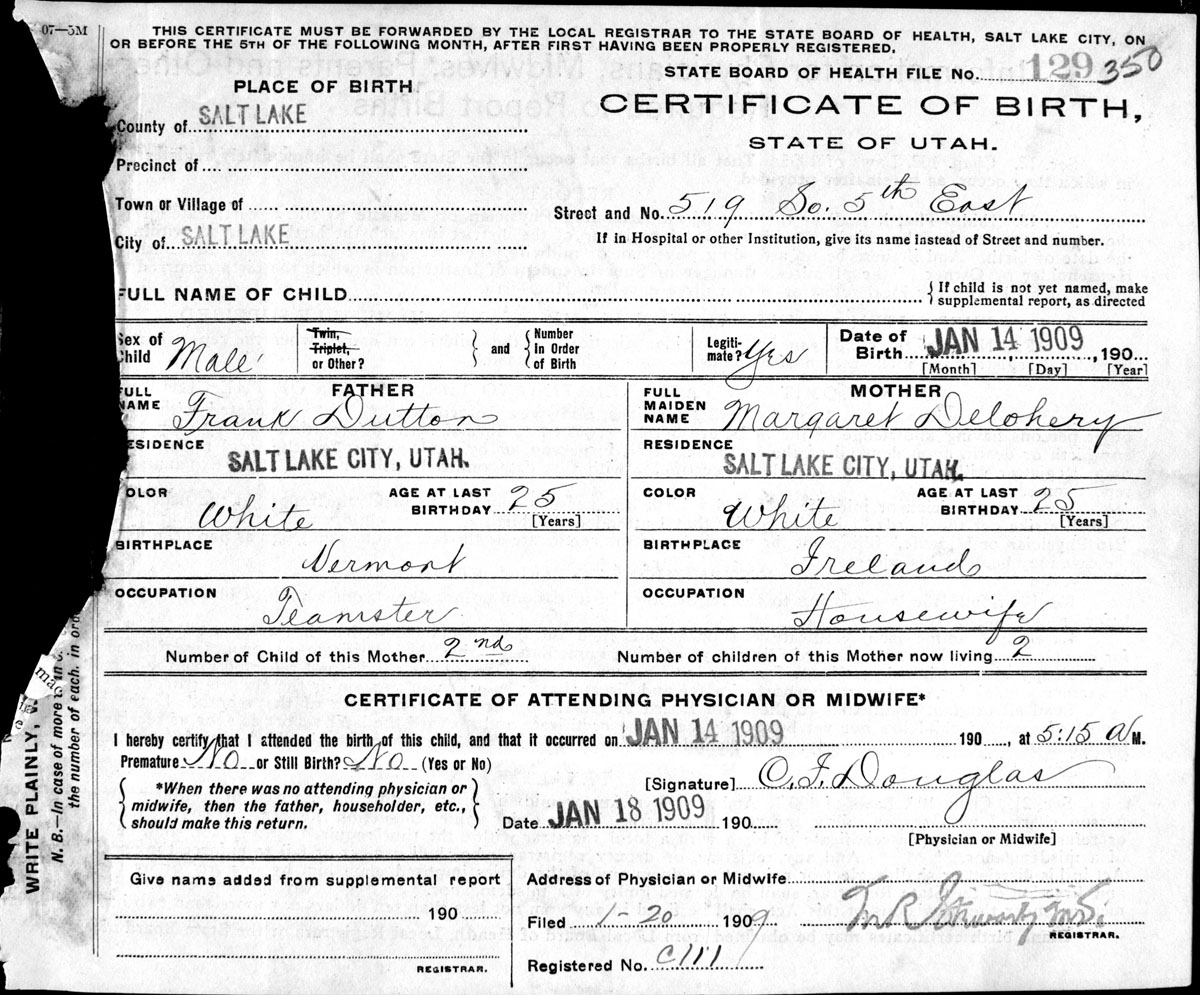 07—5M
THIS CERTIFICATE MUST BE FORWARDED BY THE LOCAL REGISTRAR TO THE STATE BOARD OF HEALTH, SALT LAKE CITY, ON
OR BEFORE THE 5TH OF THE FOLLOWING MONTH, AFTER FIRST HAVING BEEN PROPERLY REGISTERED.
STATE BOARD OF HEALTH FILE No. 129 350
PLACE OF BIRTH
CERTIFICATE OF BIRTH,
STATE OF UTAH.
County of SALT LAKE
Precinct of
Town or Village of
Street and No. 519 So. 5th East
City of SALT LAKE
If in Hospital or other Institution, give its name instead of Street and number.
FULL NAME OF CHILD
{ If child is not yet named, make
supplemental report, as directed
Sex of Child Male
Twin, Triplet, or Other?
} and { Number In Order of Birth
Legiti- mate? Yes
Date of Birth JAN 14 1909, 190
[Month] [Day] [Year]
FATHER
FULL NAME Frank Dutton
MOTHER
FULL MAIDEN NAME Margaret Delohery
RESIDENCE SALT LAKE CITY, UTAH.
RESIDENCE SALT LAKE CITY, UTAH.
COLOR White AGE AT LAST BIRTHDAY 25 [Years]
COLOR White AGE AT LAST BIRTHDAY 25 [Years]
BIRTHPLACE Vermont
BIRTHPLACE Ireland
OCCUPATION Teamster
OCCUPATION Housewife
Number of Child of this Mother 2nd
Number of children of this Mother now living 2
CERTIFICATE OF ATTENDING PHYSICIAN OR MIDWIFE*
I hereby certify that I attended the birth of this child, and that it occurred on JAN 14 1909 190, at 5:15 A M.
Premature No or Still Birth? No (Yes or No)
{ *When there was no attending physician or
midwife, then the father, householder, etc.,
should make this return. }
[Signature] C. F. Douglas
Date JAN 18 1909 190
[Physician or Midwife]
Give name added from supplemental report
190
REGISTRAR.
Address of Physician or Midwife
Filed 1-20 1909
M.D.
REGISTRAR.
Registered No. C111
WRITE PLAINLY,
N. B.—In case of more
the number of each, in ord